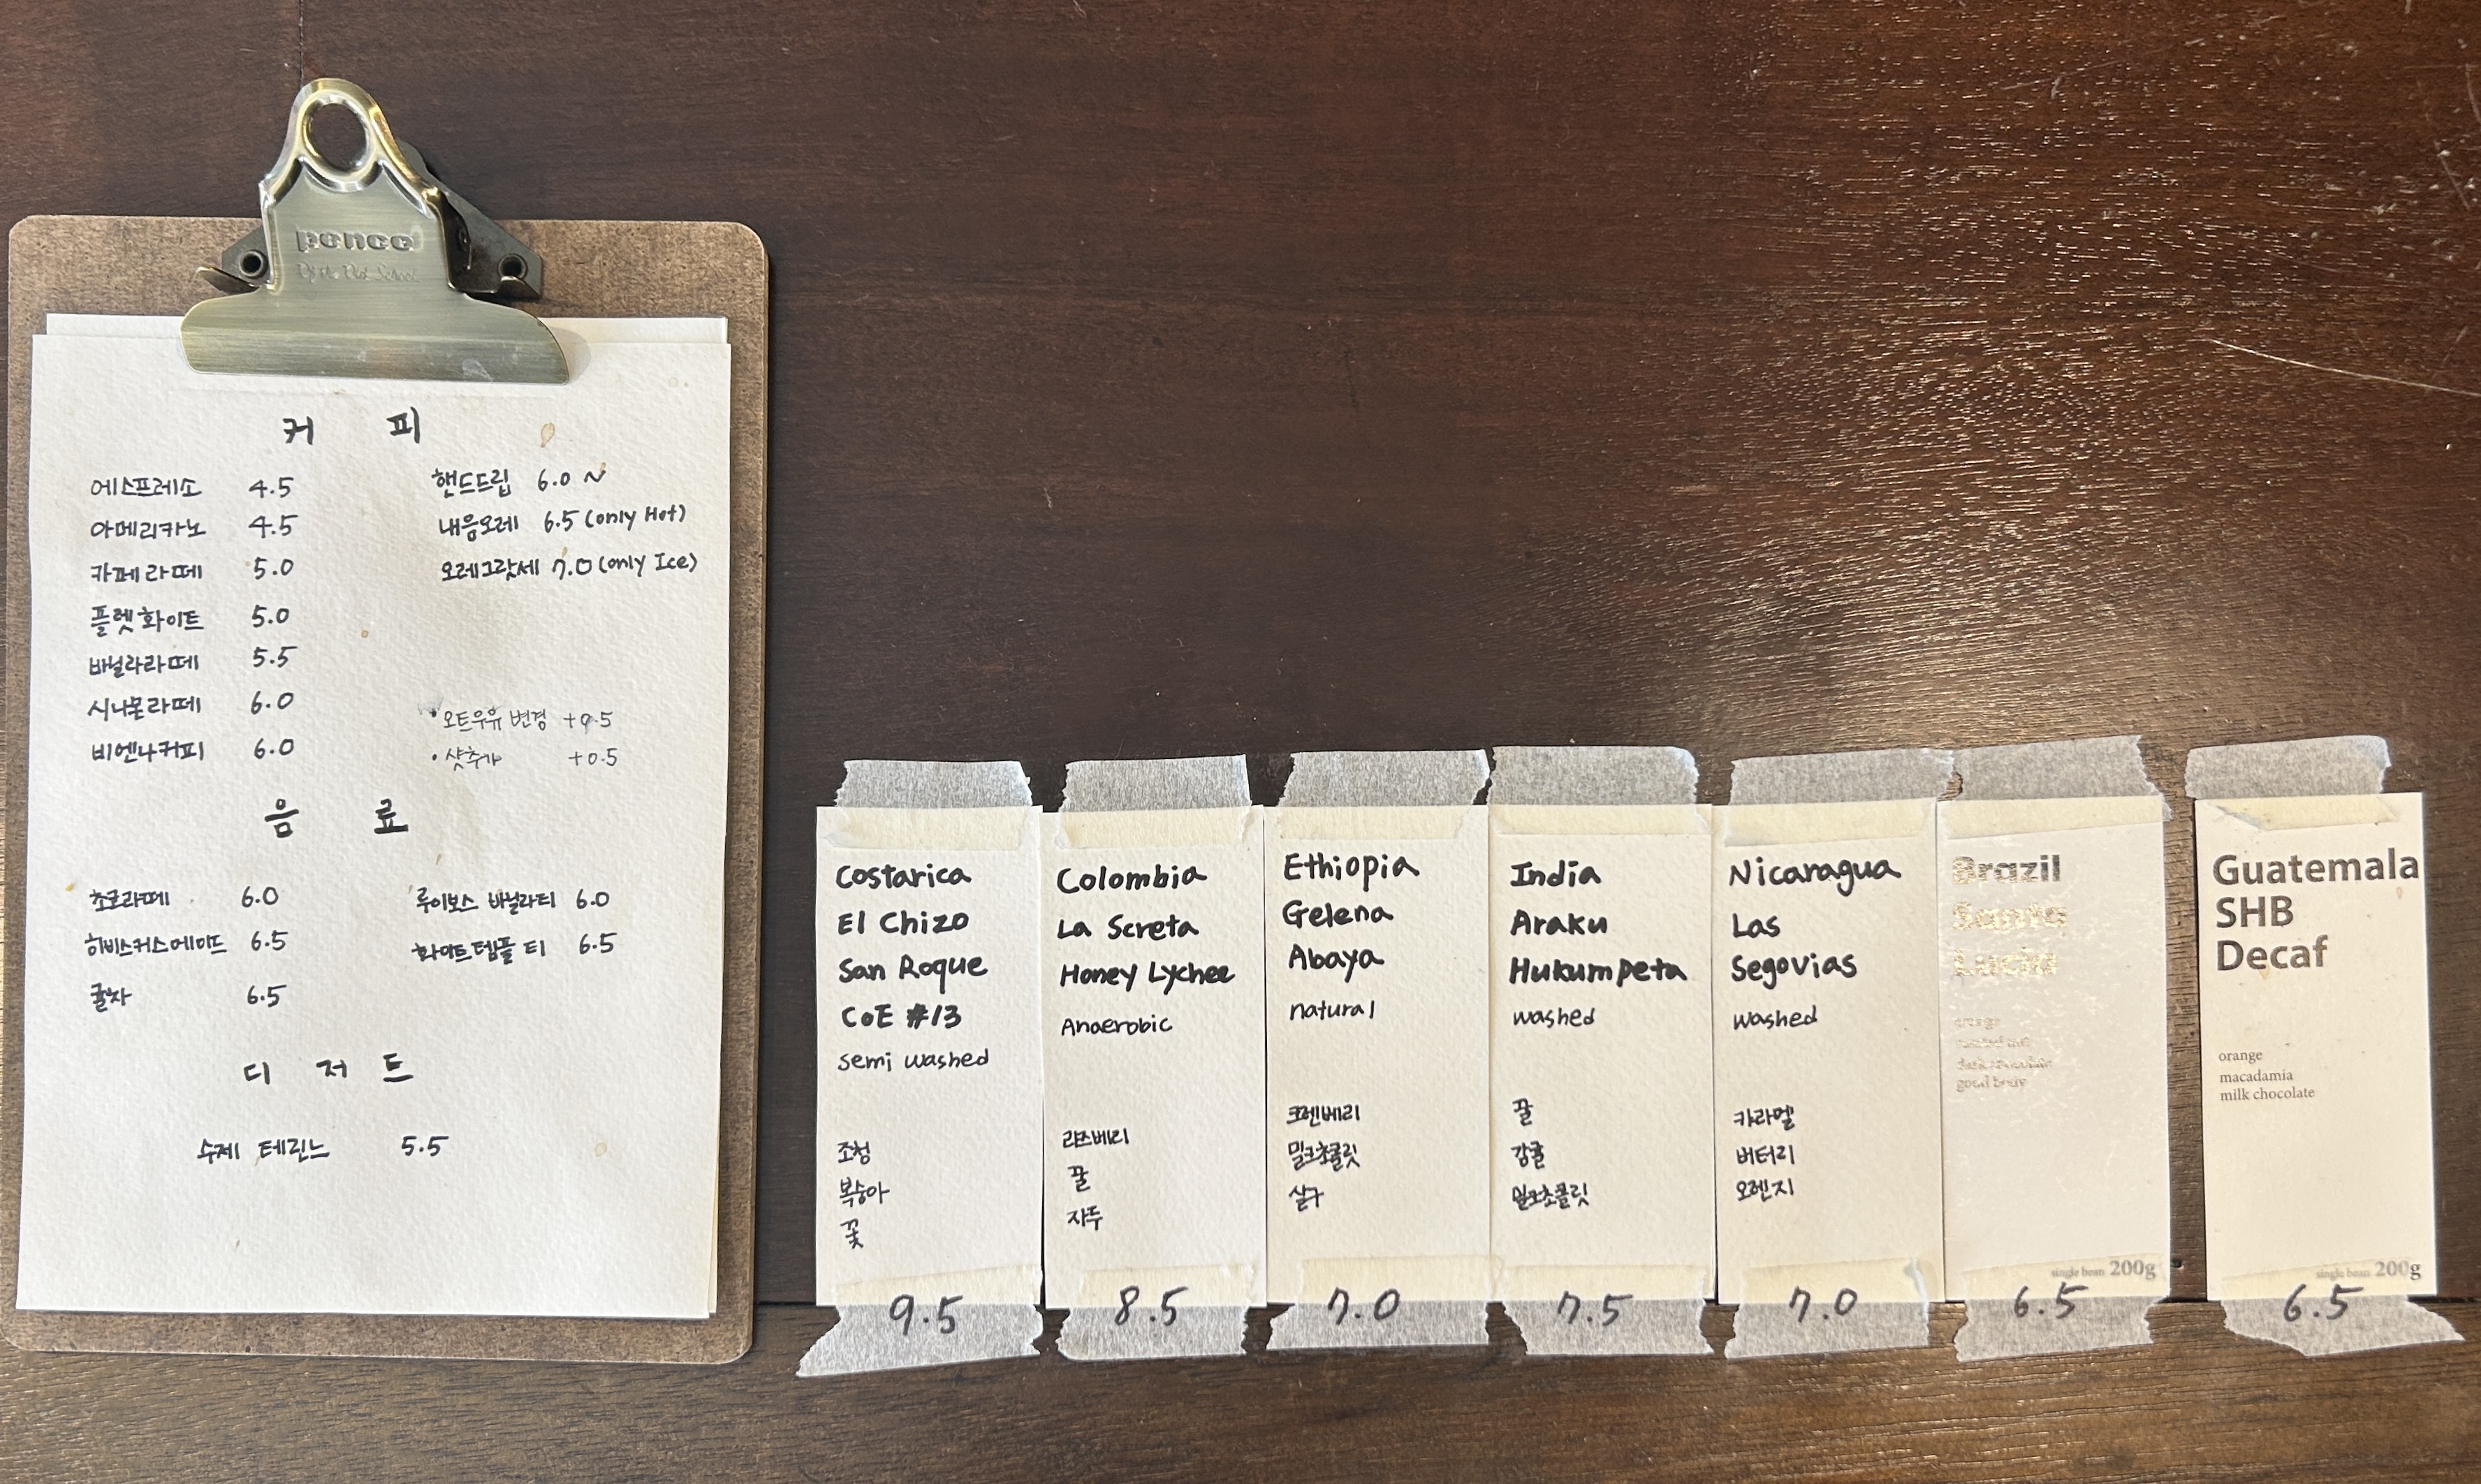 penco
Of the Old School
커 피
에스프레소 4.5
아메리카노 4.5
카페라떼 5.0
플렛화이트 5.0
바닐라라떼 5.5
시나몬라떼 6.0
비엔나커피 6.0
핸드드립 6.0 ~
내음오레 6.5 (only Hot)
오레그랏세 7.0 (only Ice)
•오트우유 변경 +0.5
•샷추가 +0.5
음 료
초코라떼 6.0
히비스커스에이드 6.5
귤차 6.5
루이보스 바닐라티 6.0
화이트템플 티 6.5
디 저 트
수제 테린느 5.5
Costarica
El Chizo
San Roque
CoE #13
semi washed
조청
복숭아
꽃
9.5
Colombia
La Screta
Honey Lychee
Anaerobic
라즈베리
꿀
자두
8.5
Ethiopia
Gelena
Abaya
natural
크렌베리
밀크초콜릿
살구
7.0
India
Araku
Hukumpeta
washed
꿀
감귤
밀크초콜릿
7.5
Nicaragua
Las
Segovias
washed
카라멜
버터리
오렌지
7.0
Brazil
Santa
Lucia
orange
dark chocolate
good body
single bean 200g
6.5
Guatemala
SHB
Decaf
orange
macadamia
milk chocolate
single bean 200g
6.5